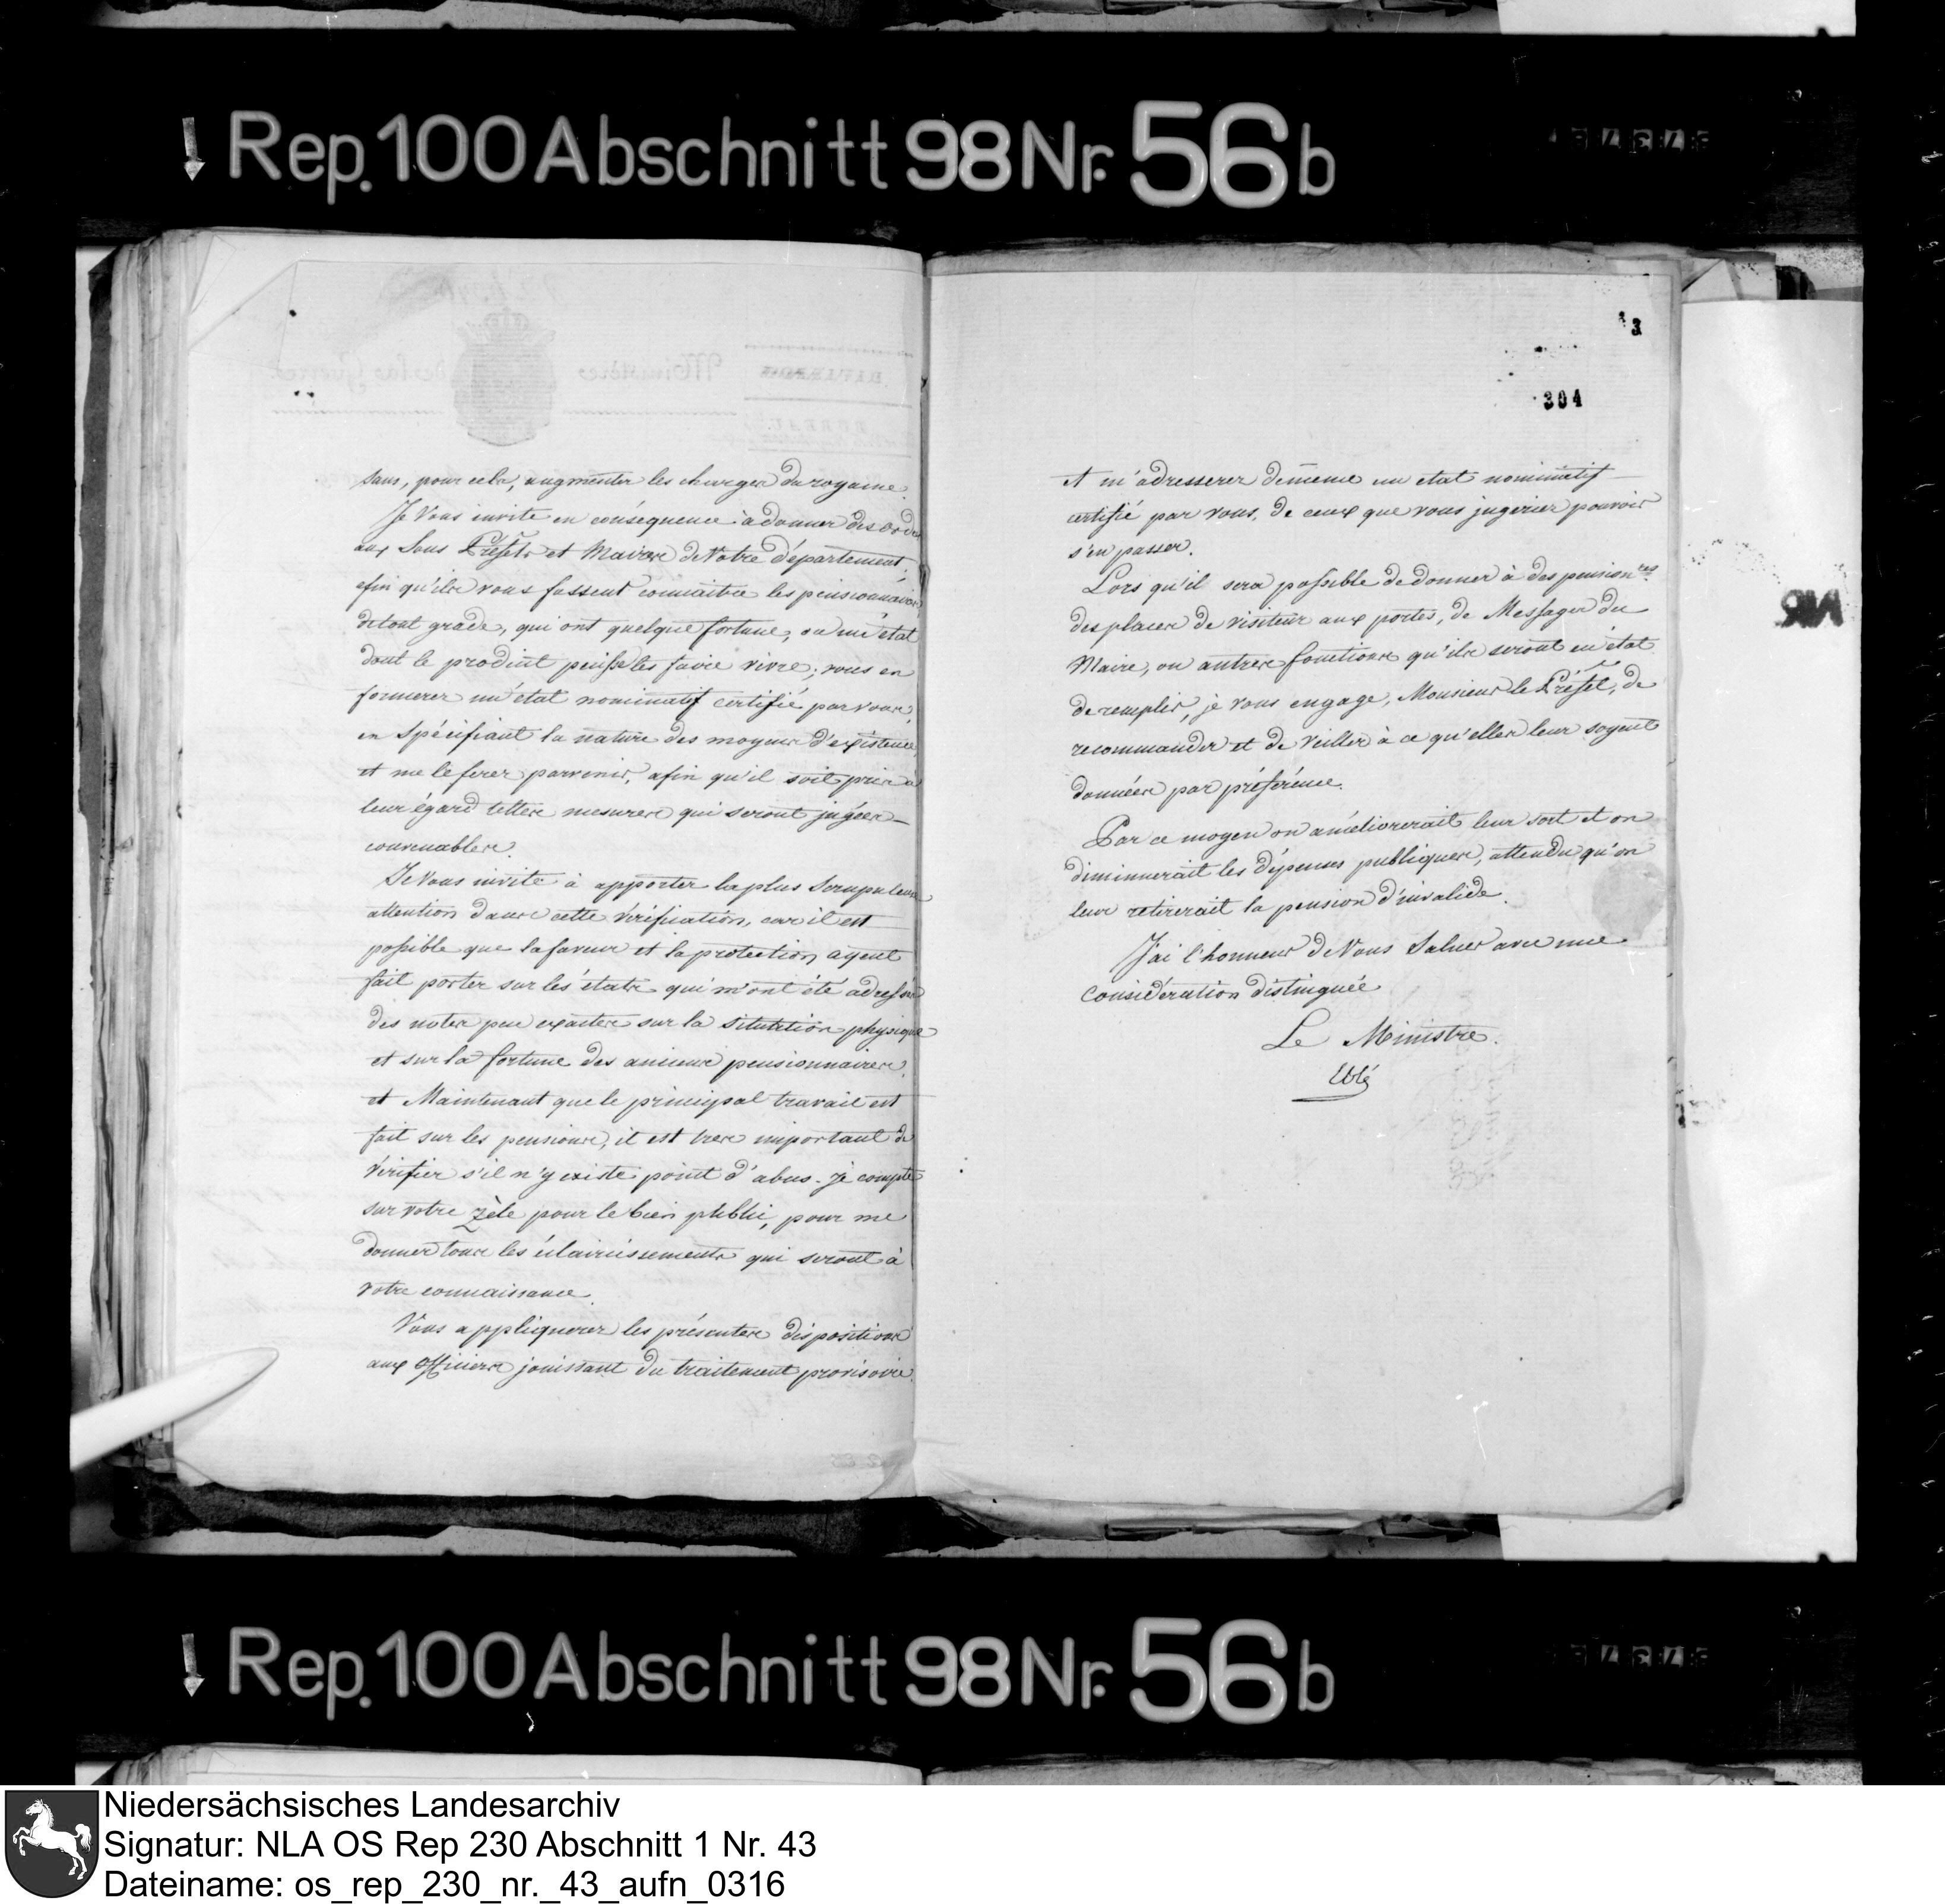 Rep. 100 Abschnitt 98 Nr. 56 b
sans, pour cela, augmenter les charges du royaume.
Je Vous invite en conséquence à donner des ordres
aux Sous Préfets et Maires de Votre département,
afin qu'ils vous fassent connaitre les pensionnaires
de tout grade, qui ont quelque fortune, ou un état
dont le produit puisse les faire vivre; vous en
formerez un état nominatif certifié par vous,
en Spécifiant la nature des moyens d'existence,
et me le ferez parvenir, afin qu'il soit pris à
leur égard telles mesures qui seront jugées
convenables.
Je Vous invite à apporter la plus Scrupuleuse
attention dans cette vérification, car il est
possible que la faveur et la protection ayent
fait porter sur les états qui m'ont été adressés
des notes peu exactes sur la situtation physique
et sur la fortune des anciens pensionnaires.
et Maintenant que le principal travail est
fait sur les pensions, il est tres important de
vérifier s'il n'y existe point d'abus. je compte
sur votre zèle pour le bien public, pour me
donner tous les éclaircissements qui seront à
votre connaissance.
Vous appliquerez les présentes dispositions
aux officiers jouissant du traitement provisoire
3
304
et m'adresserez de même un etat nominatif
certifié par vous, de ceux que vous jugeriez pouvoir
s'en passer.
Lors qu'il sera possible de donner à des pension.res
des places de visiteur aux portes, de Messager du
Maire, ou autres fonctions qu'ils seront en état
de remplir, je vous engage, Monsieur le Préfet, de
recommander et de veiller à ce qu'elles leur soyent
données par préférence.
Par ce moyen on améliorerait leur sort et on
diminuerait les dépenses publiques, attendu qu'on
leur retirerait la pension d'invalide.
J'ai l'honneur de Vous Saluer avec une
Considération distinguée
Le Ministre.
Eblé
Rep. 100 Abschnitt 98 Nr. 56 b
Niedersächsisches Landesarchiv
Signatur: NLA OS Rep 230 Abschnitt 1 Nr. 43
Dateiname: os_rep_230_nr._43_aufn_0316